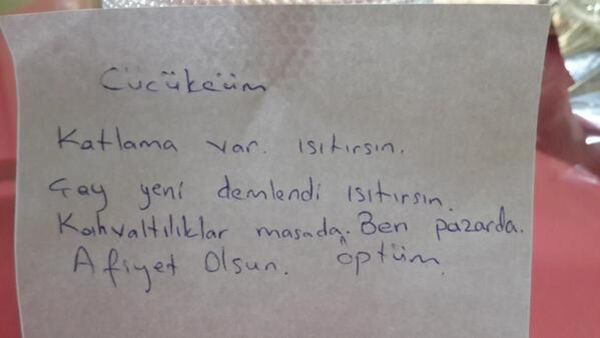 Cücükcüm
Katlama var. ısıtırsın.
Çay yeni demlendi ısıtırsın.
Kahvaltılıklar masada. Ben pazarda.
Afiyet Olsun. öptüm